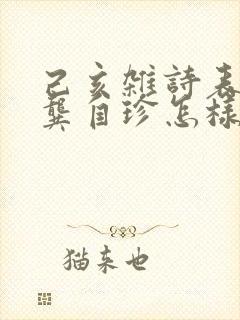 己亥雜詩表
龔自珍怎樣
猫来也